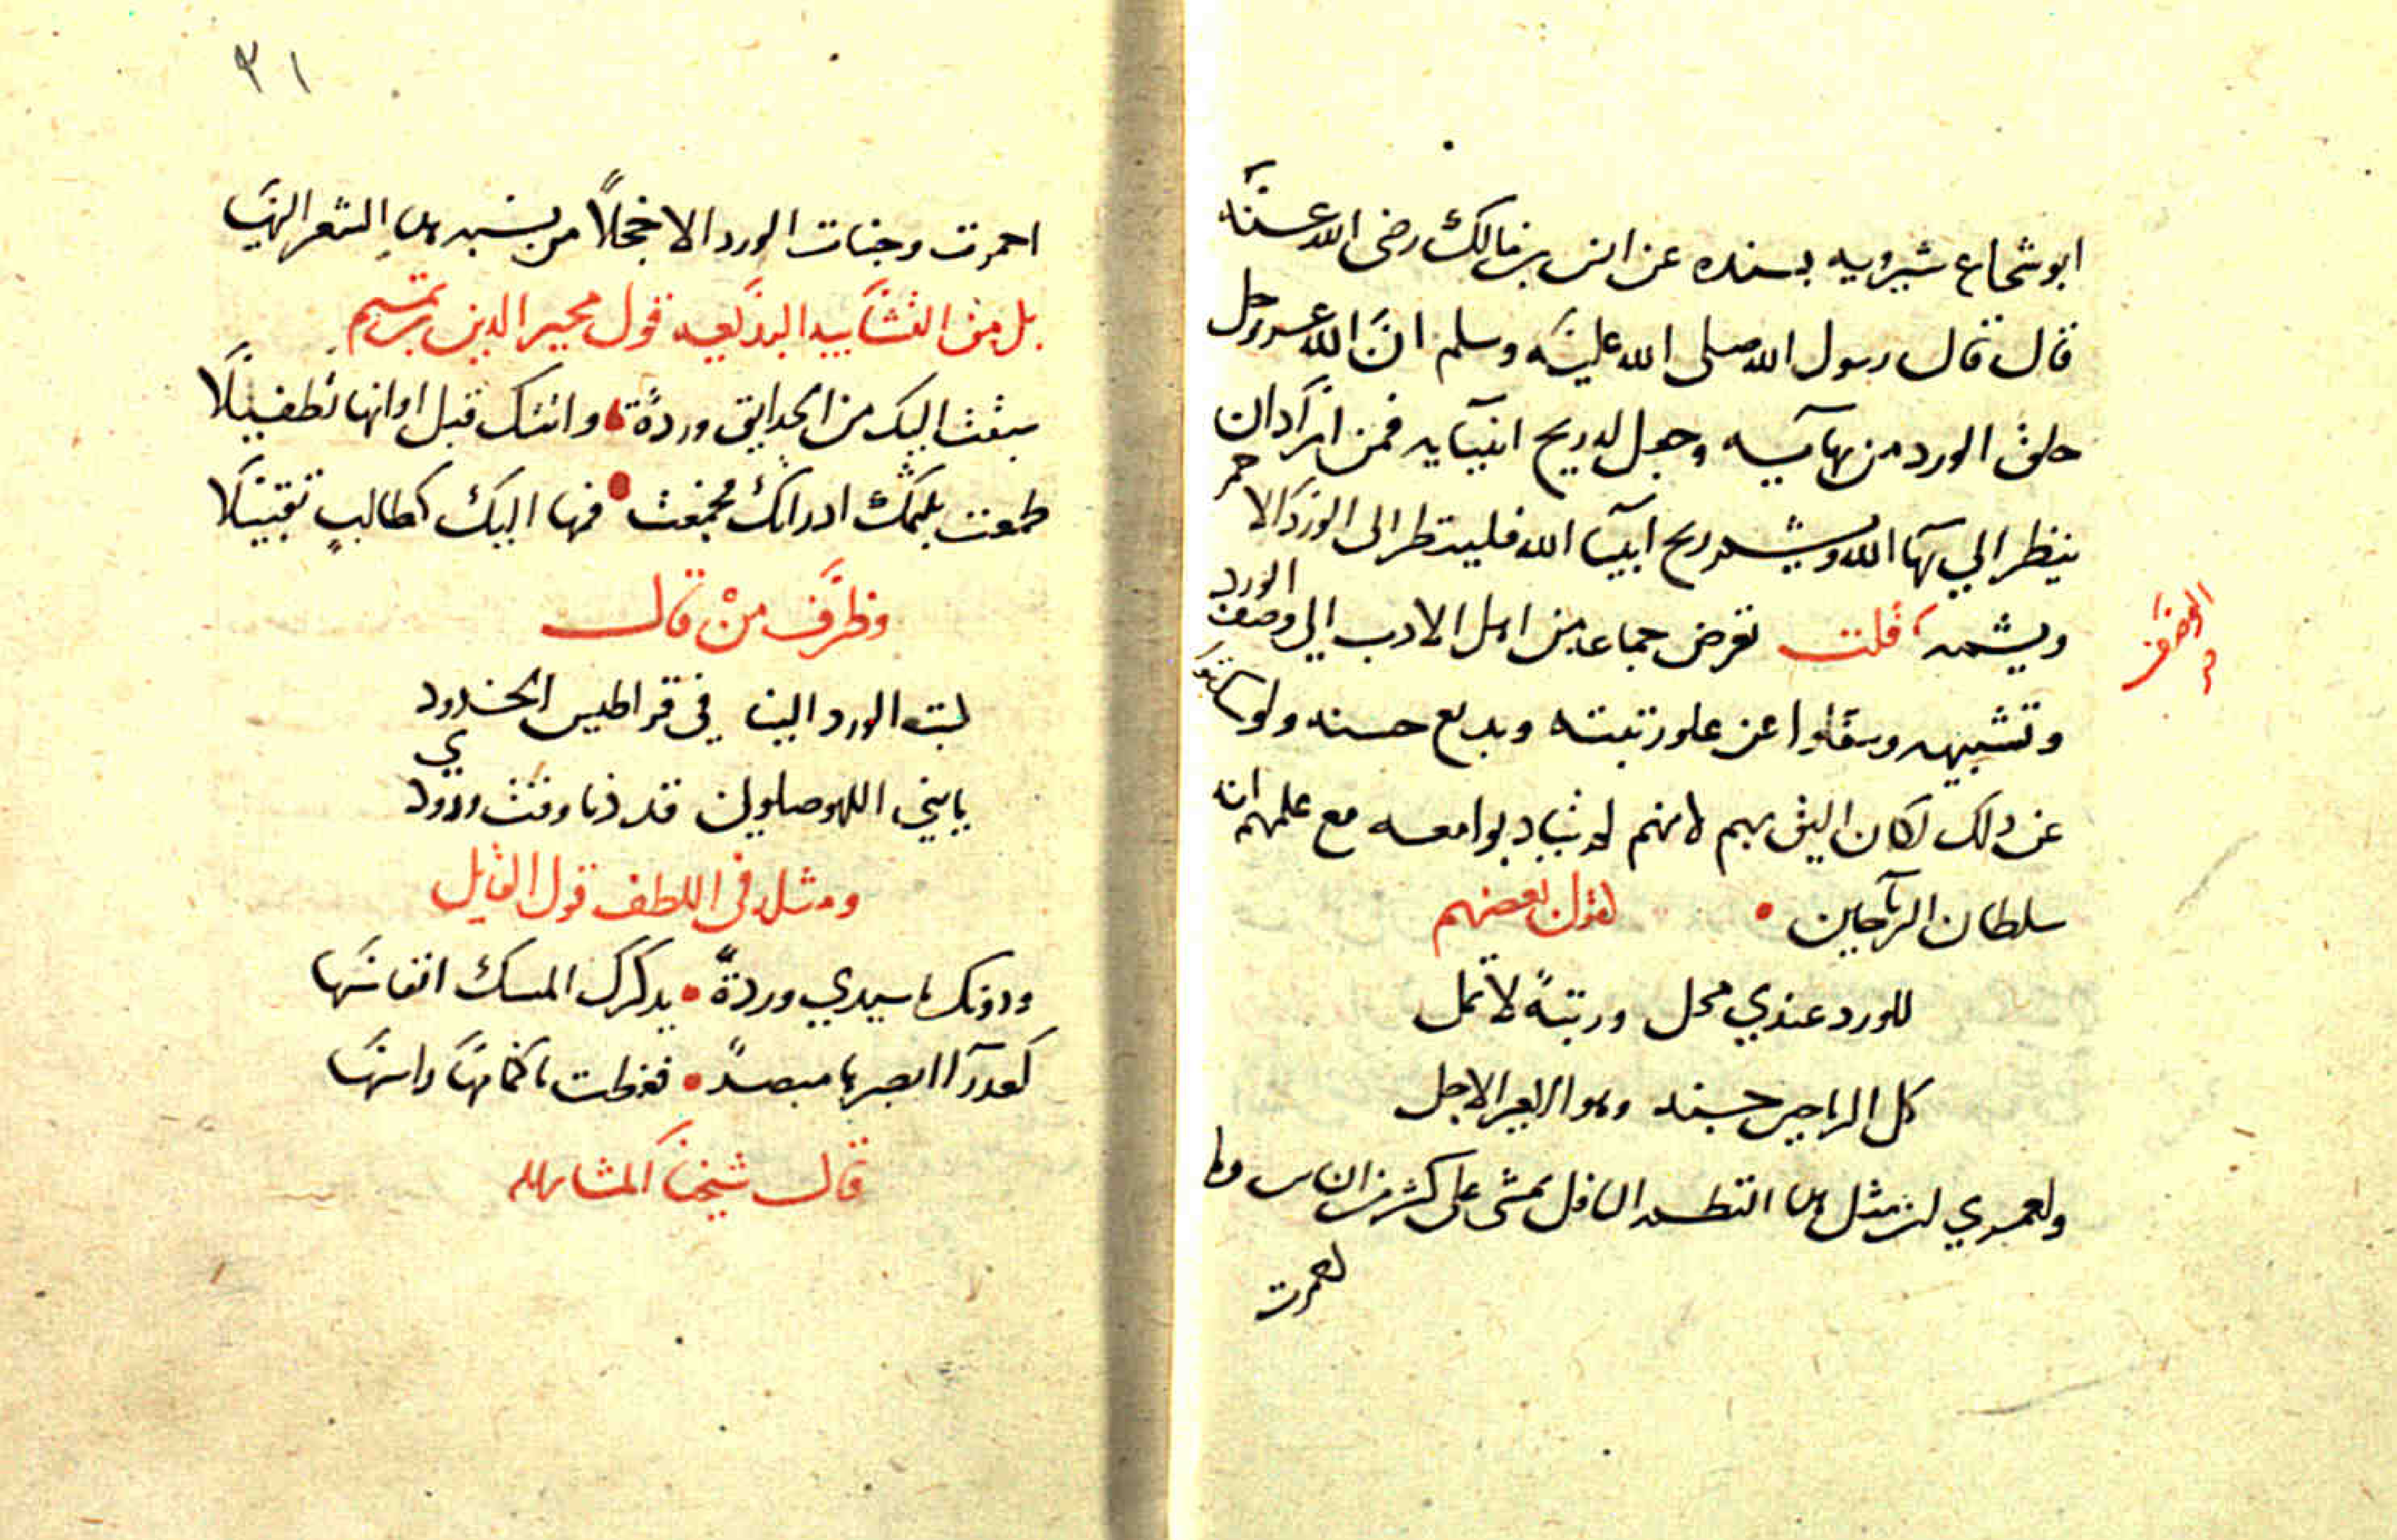 ابو شجاع شيرويه بسنده عن انس بن مالك رضى الله عنه
قال قال رسول الله صلى الله عليه وسلم انّ الله عز وجل
خلق الورد من بهايه وجعل له ريح انبيايه فمن اراد ان
ينظر الي بهآ الله ويشم ريح انبيآ الله فلينظر الى الورد الاحمر
ويشمه قلت تعرض جماعه من اهل الادب الي وصف الورد
وتشبيهه وسفلوا عن علو رتبته وبديع حسنه ولو سكتوا
عن ذلك لكان اليق بهم لانهم لم يتادبوا معه مع علمهم انه
سلطان الرياحين لقول بعضهم
للورد عندي محل ورتبة لا تمل
كل الرياحين جند وهو الامير الاجل
ولعمري لن مثل هذا النظم السافل يمشى على كثير من الناس وما
احمرت
٣١
احمرت وجنات الورد الا خجلاً من تشبيه هذا الشعر
بل من التشابيه البديعه قول مجير الدين بن تميم
سبقت اليك من الحدايق وردةً واتتك قبل اوانها تطفيلا
طمعت بلثمك اذ راتك فجمعت فمها اليك كطالبٍ تقبيلا
وظرّف منْ قال
كتب الورد الينا في قراطيس الخدود
يا بني اللهو صلوني قد دنا وقت ورودي
ومثله فى اللطف قول القايل
ودونك يا سيدي وردةً يذكرك المسك انفاسها
كعذرآ ابصرها مبصرٌ فغطت باكمامها راسها
قال شيخنا المشار له